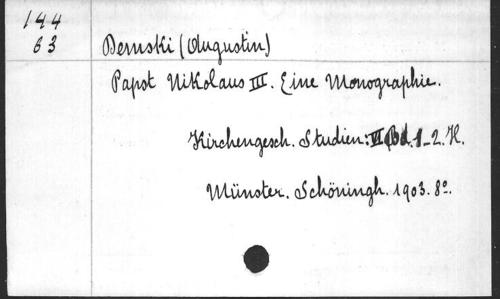 144
63
Demski (Augustin)
Papst Nikolaus III. Eine Monographie.
Kirchengesch. Studien: VI Bd. 1_2. H.
Münster. Schöningh. 1903. 8º.